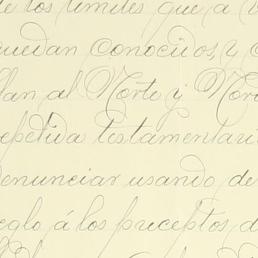 de los limites que a
quedan conocidos, y
llan al Norte y Nor
repetida testamentari
denunciar usando de
reglo á los preceptos d